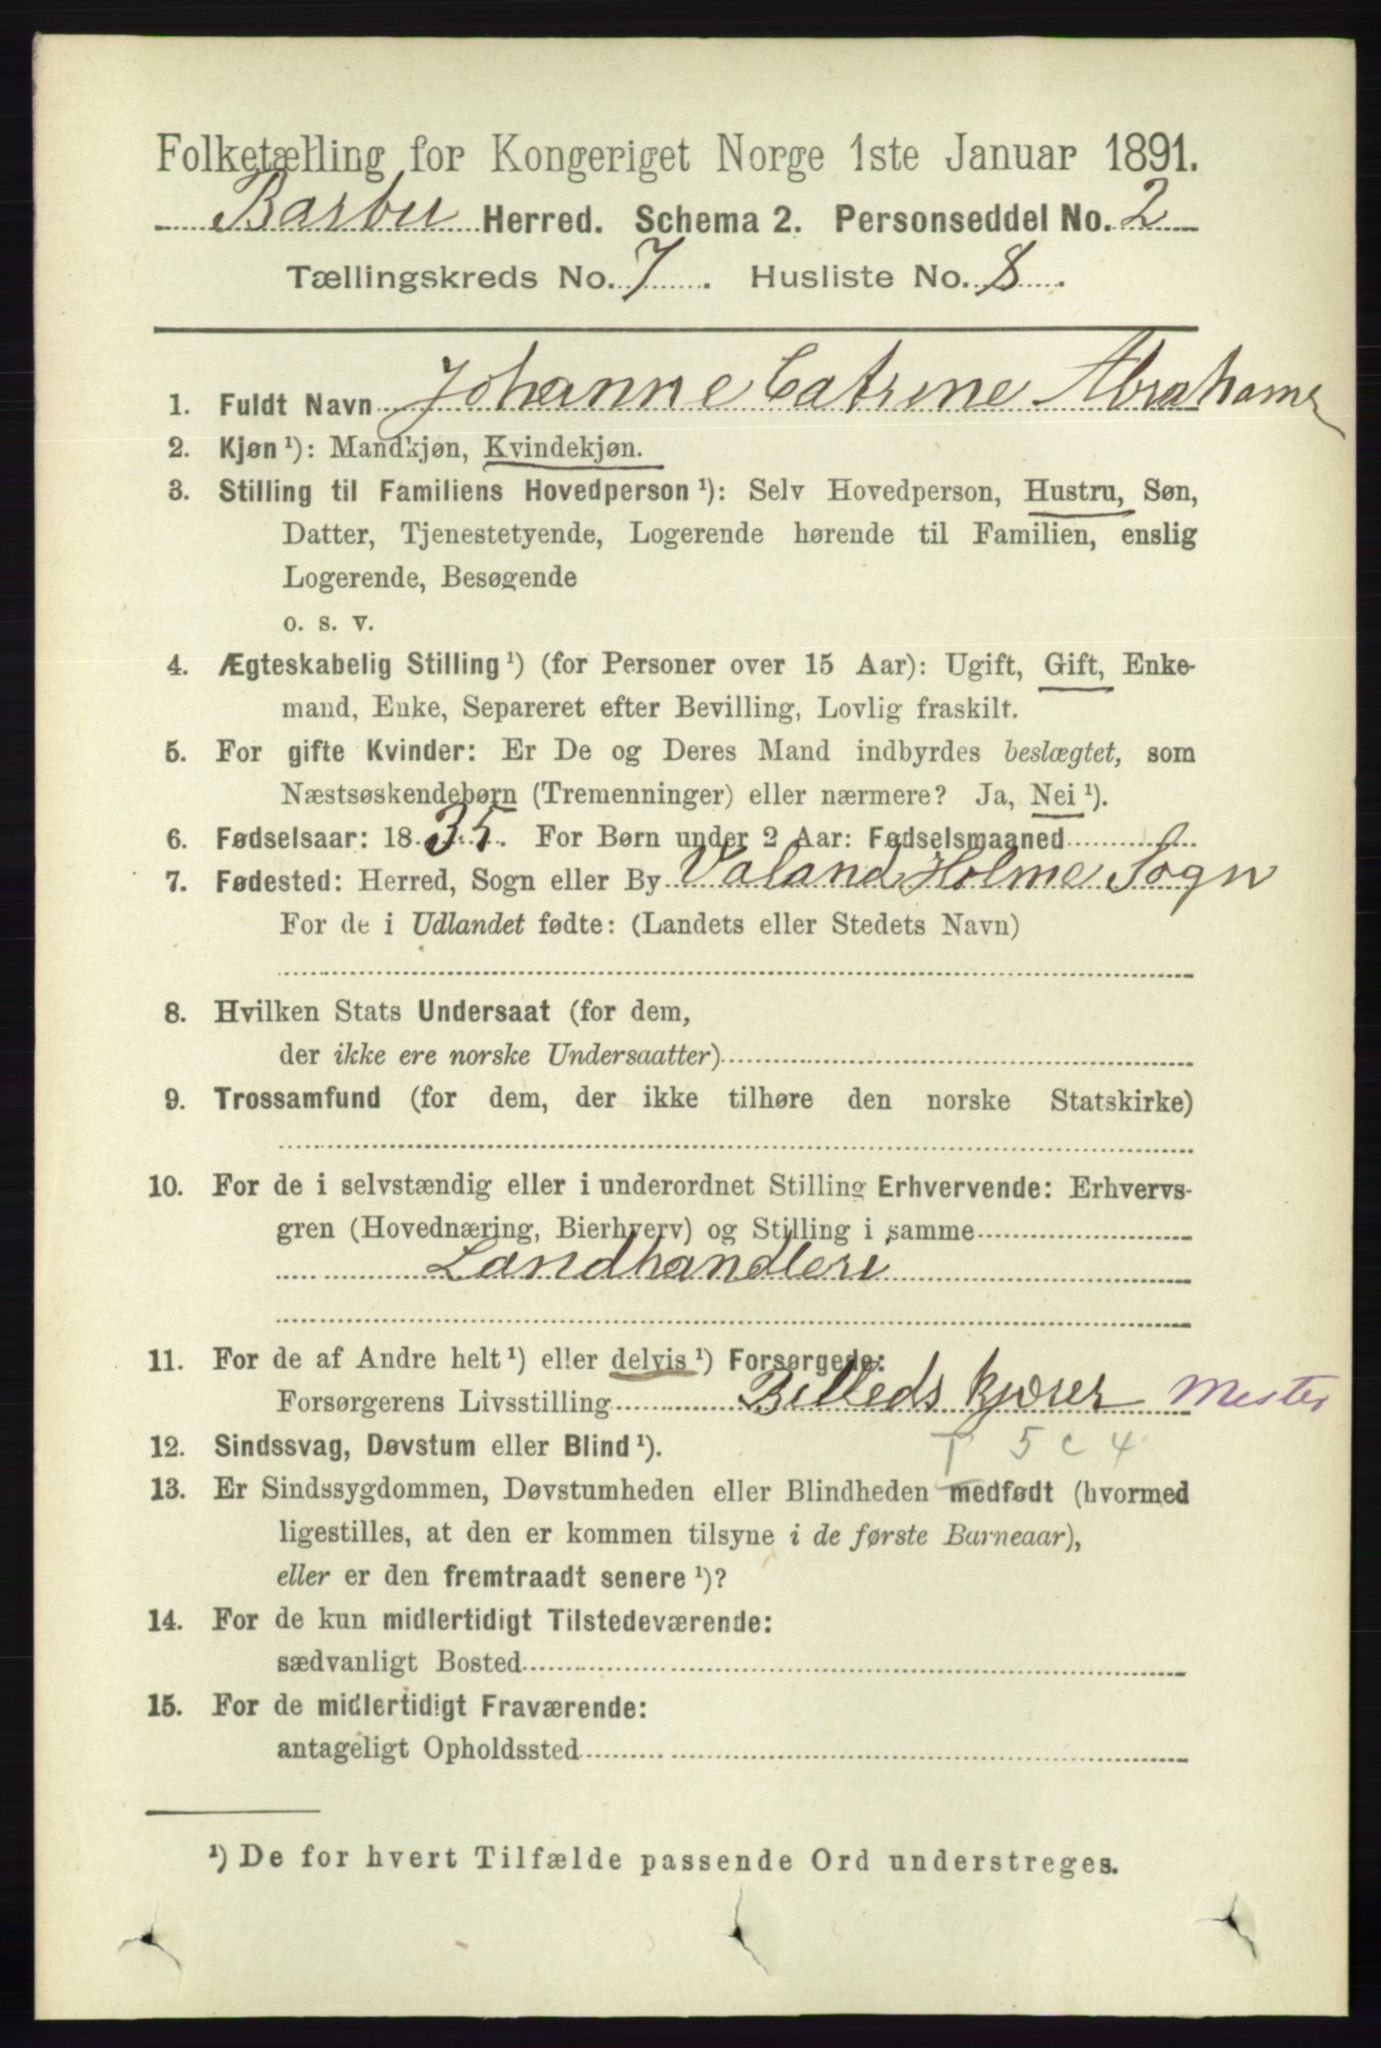 Folketælling for Kongeriget Norge 1ste Januar 1891.
Barbu Herred. Schema 2. Personseddel No. 2
Tællingskreds No. 7. Husliste No. 8.
1. Fuldt Navn Johanne Catrine Abrahams
2. Kjøn ¹): Mandkjøn, Kvindekjøn.
3. Stilling til Familiens Hovedperson ¹): Selv Hovedperson, Hustru, Søn,
Datter, Tjenestetyende, Logerende hørende til Familien, enslig
Logerende, Besøgende
o. s. v.
4. Ægteskabelig Stilling ¹) (for Personer over 15 Aar): Ugift, Gift, Enke-
mand, Enke, Separeret efter Bevilling, Lovlig fraskilt.
5. For gifte Kvinder: Er De og Deres Mand indbyrdes beslægtet, som
Næstsøskendebørn (Tremenninger) eller nærmere? Ja, Nei ¹).
6. Fødselsaar: 1835. For Børn under 2 Aar: Fødselsmaaned
7. Fødested: Herred, Sogn eller By Valand Holme Sogn
For de i Udlandet fødte: (Landets eller Stedets Navn)
8. Hvilken Stats Undersaat (for dem,
der ikke ere norske Undersaatter)
9. Trossamfund (for dem, der ikke tilhøre den norske Statskirke)
10. For de i selvstændig eller i underordnet Stilling Erhvervende: Erhvervs-
gren (Hovednæring, Bierhverv) og Stilling i samme
Landhandleri
11. For de af Andre helt ¹) eller delvis ¹) Forsørgede:
Forsørgerens Livsstilling Billedskjærer Mester
12. Sindssvag, Døvstum eller Blind ¹). T 5 c 4
13. Er Sindssygdommen, Døvstumheden eller Blindheden medfødt (hvormed
ligestilles, at den er kommen tilsyne i de første Barneaar),
eller er den fremtraadt senere ¹)?
14. For de kun midlertidigt Tilstedeværende:
sædvanligt Bosted
15. For de midlertidigt Fraværende:
antageligt Opholdssted
¹) De for hvert Tilfælde passende Ord understreges.